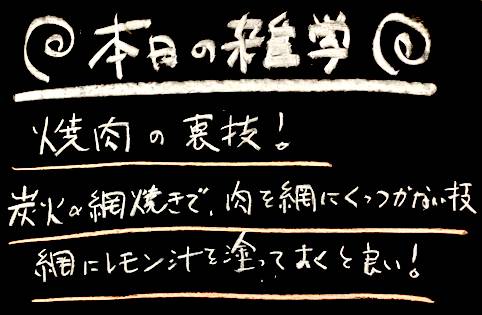 本日の雑学
焼肉の裏技!
炭火の網焼きで、肉を網にくっつかない技
網にレモン汁を塗っておくと良い!